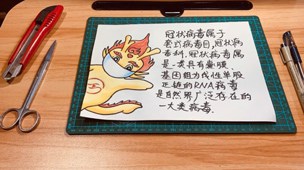 冠状病毒属于
套式病毒目,冠状病
毒科,冠状病毒属
是一类具有囊膜、
基因组为线性单股
正链的RNA病毒
是自然界广泛存在的
一大类病毒.